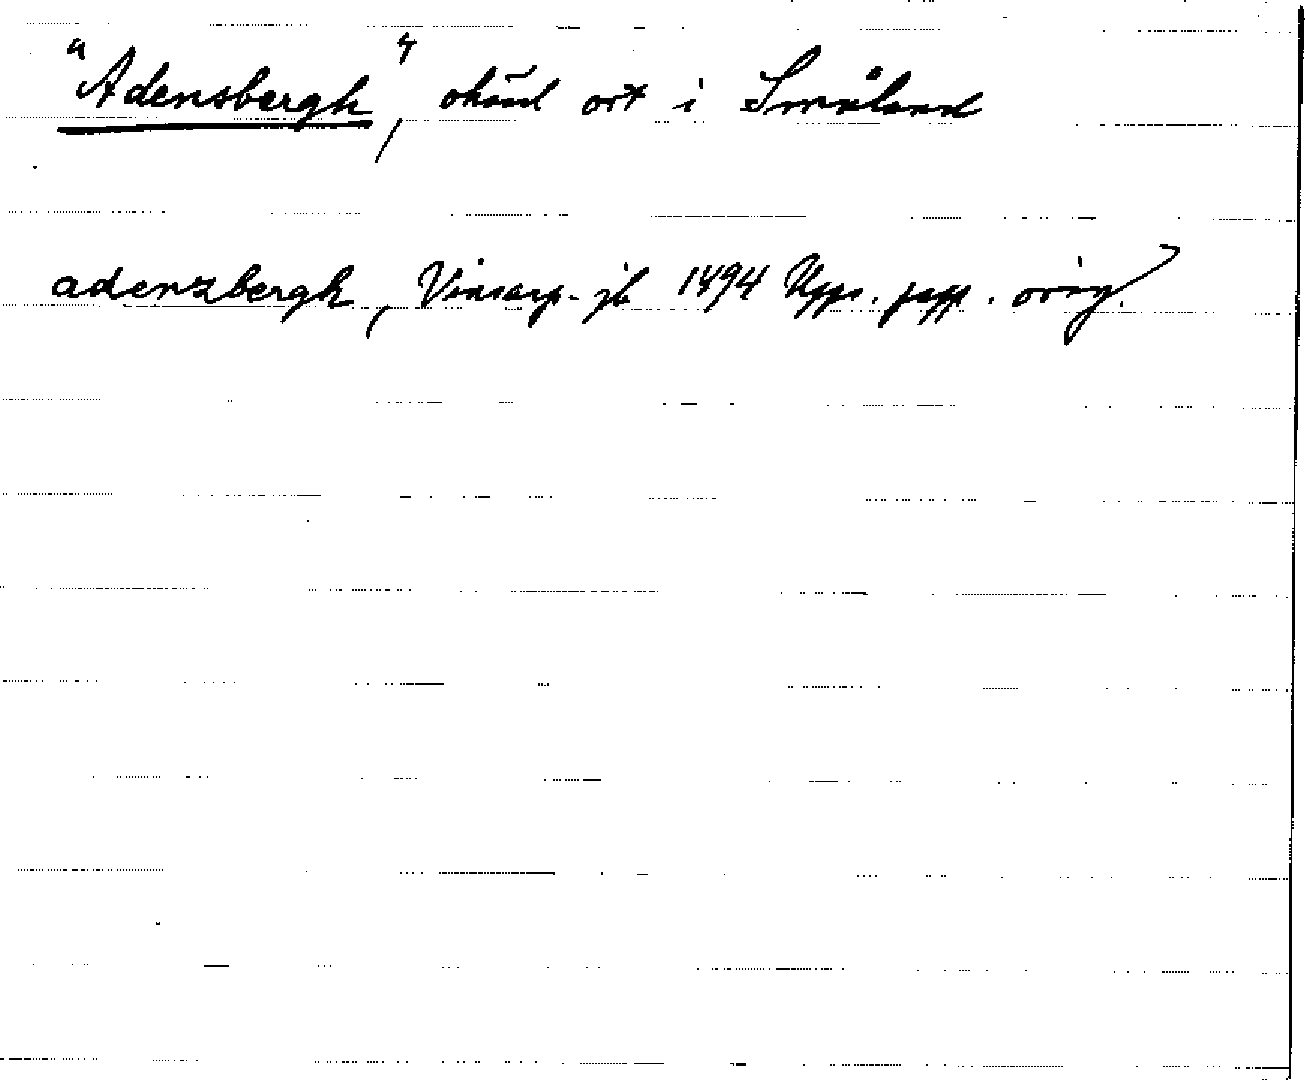 "Adensbergh", okänd ort i Småland
adenzbergh, Vinsarp-jb 1494 Upps. papp. orig.